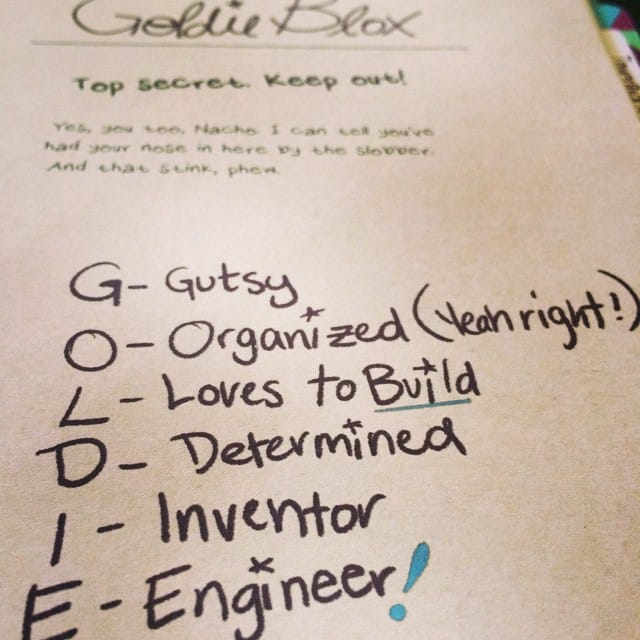 Goldie Blox
Top secret. Keep out!
Yes, you too, Nacho. I can tell you've
had your nose in here by the slobber.
And that stink, phew.
G- Gutsy
O- Organized (Yeah right!)
L- Loves to Build
D- Determined
I- Inventor
E- Engineer!